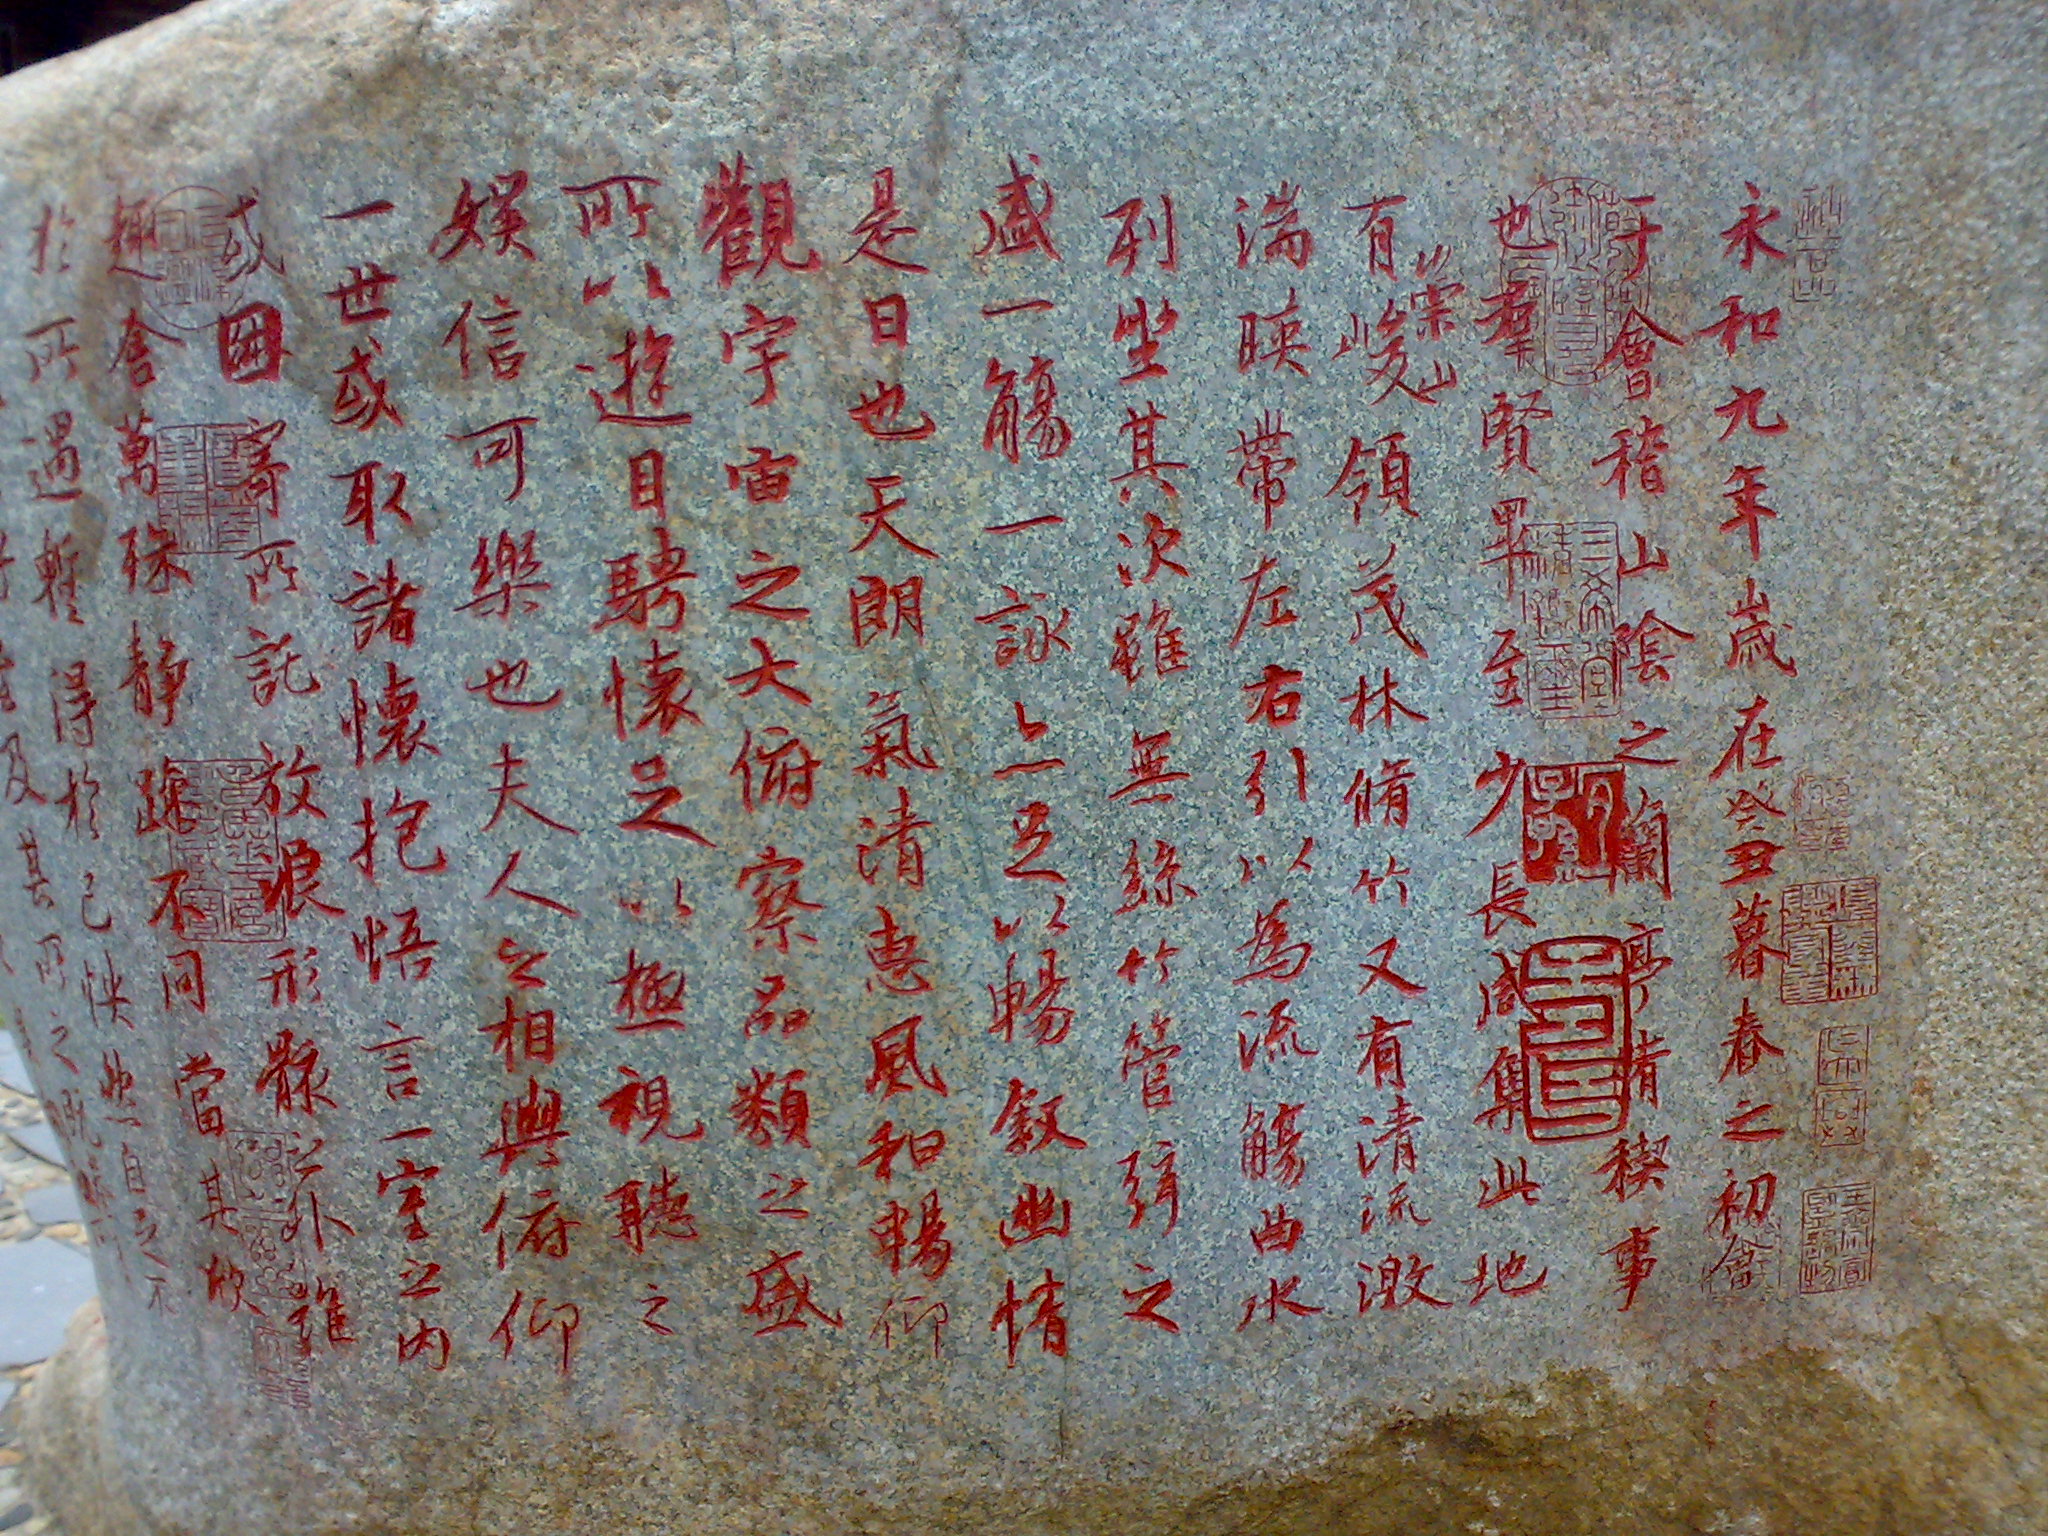 永和九年歲在癸丑暮春之初會
于會稽山陰之蘭亭脩禊事
也羣賢畢至少長咸集此地
有崇山峻領茂林脩竹又有清流激
湍暎帶左右引以為流觴曲水
列坐其次雖無絲竹管弦之
盛一觴一詠亦足以暢敘幽情
是日也天朗氣清惠風和暢仰
觀宇宙之大俯察品類之盛
所以遊目騁懷足以極視聽之
娛信可樂也夫人之相與俯仰
一世或取諸懷抱悟言一室之內
或因寄所託放浪形骸之外雖
趣舍萬殊靜躁不同當其欣
於所遇暫得於己怏然自足不
及其所之既